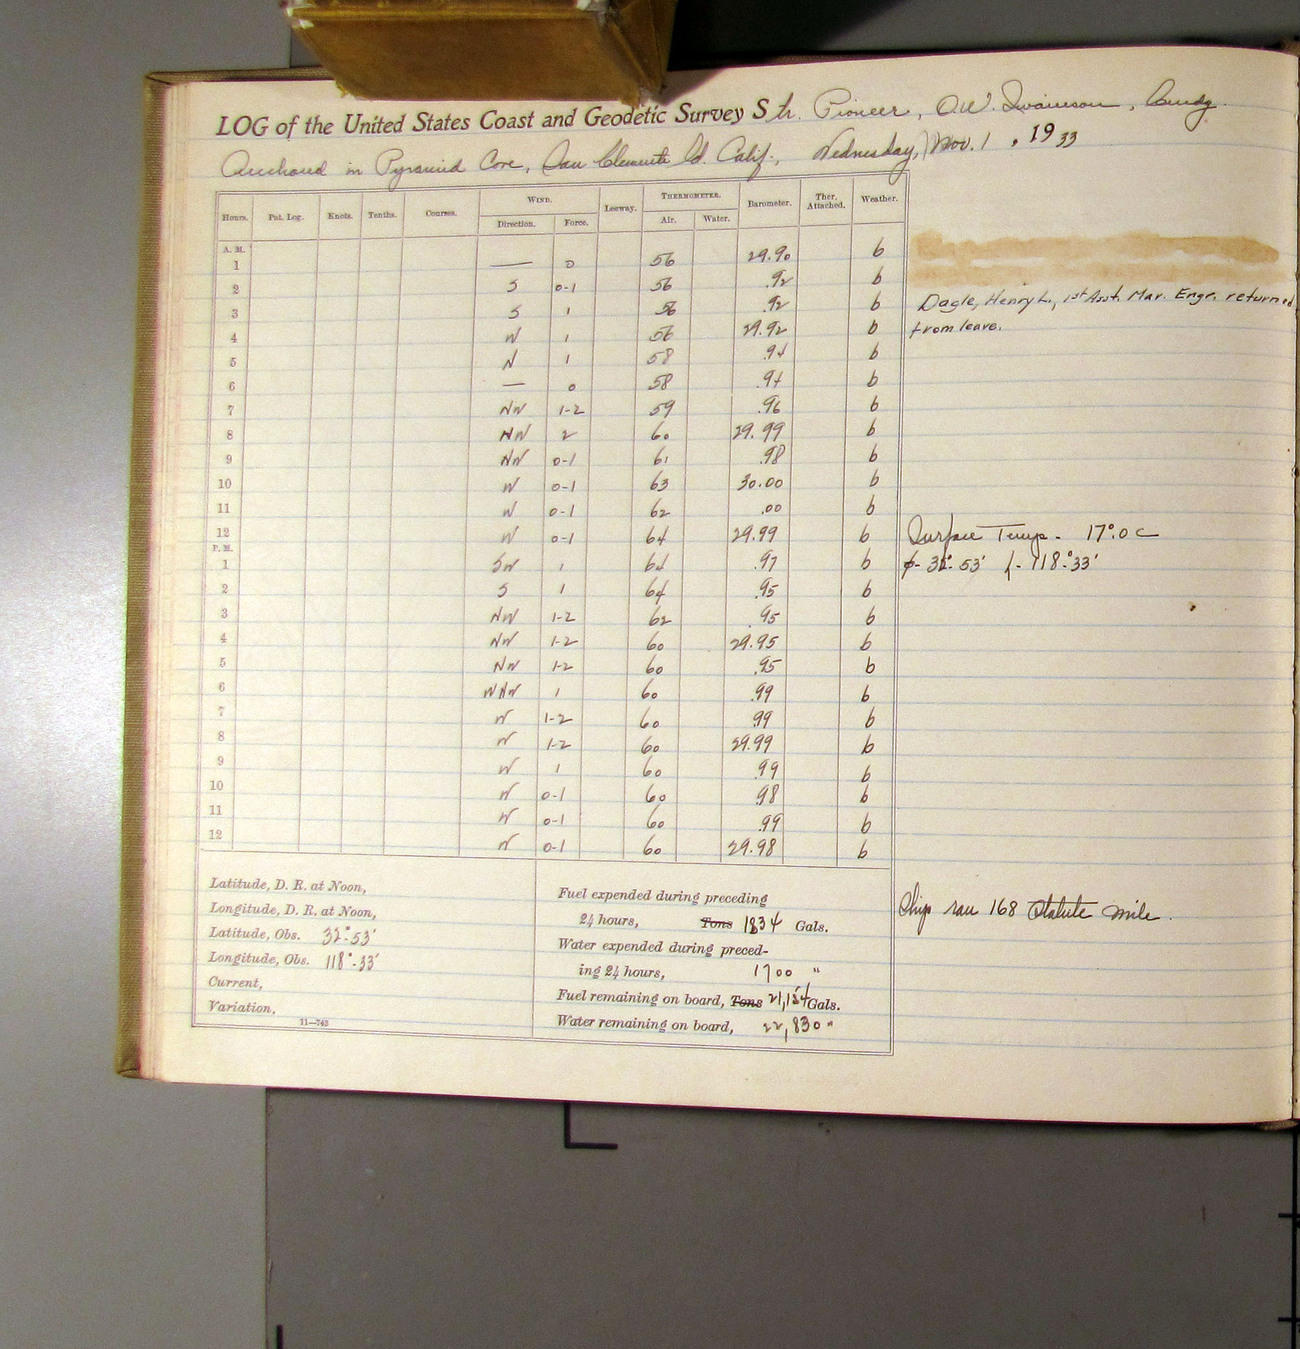 LOG of the United States Coast and Geodetic Survey Str. Pioneer, O.W. Swainson, Comdg.
Anchored in Pyramid Cove, San Clemente Id. Calif., Wednesday, Nov. 1, 1933
Hours. Pat. Log. Knots. Tenths. Courses. WIND. Leeway. THERMOMETER. Barometer. Ther. Attached. Weather.
Direction. Force. Air. Water.
A. M.
1 — 0 56 29.90 b
2 S 0-1 56 .92 b
3 S 1 56 .92 b
4 W 1 56 29.92 b
5 N 1 58 .94 b
6 — 0 58 .94 b
7 NW 1-2 59 .96 b
8 NW 2 60 29.99 b
9 NW 0-1 61 .98 b
10 W 0-1 63 30.00 b
11 W 0-1 62 .00 b
12 W 0-1 64 29.99 b
P. M.
1 SW 1 64 .97 b
2 S 1 64 .95 b
3 NW 1-2 62 .95 b
4 NW 1-2 60 29.95 b
5 NW 1-2 60 .95 b
6 WNW 1 60 .99 b
7 W 1-2 60 .99 b
8 W 1-2 60 29.99 b
9 W 1 60 .99 b
10 W 0-1 60 .98 b
11 W 0-1 60 .99 b
12 W 0-1 60 29.98 b
Dagle, Henry L., 1st Asst. Mar. Engr. returned
from leave.
Surface Temp. - 17°.0 C
ϕ- 32°-53' λ- 118°-33'
Latitude, D. R. at Noon,
Longitude, D. R. at Noon,
Latitude, Obs. 32°-53'
Longitude, Obs. 118°-33'
Current,
Variation,
11—743
Fuel expended during preceding
24 hours, Tons 1834 Gals.
Water expended during preced-
ing 24 hours, 1700 "
Fuel remaining on board, Tons Gals.
Water remaining on board, 22,830 "
Ship ran 168 Statute mile.